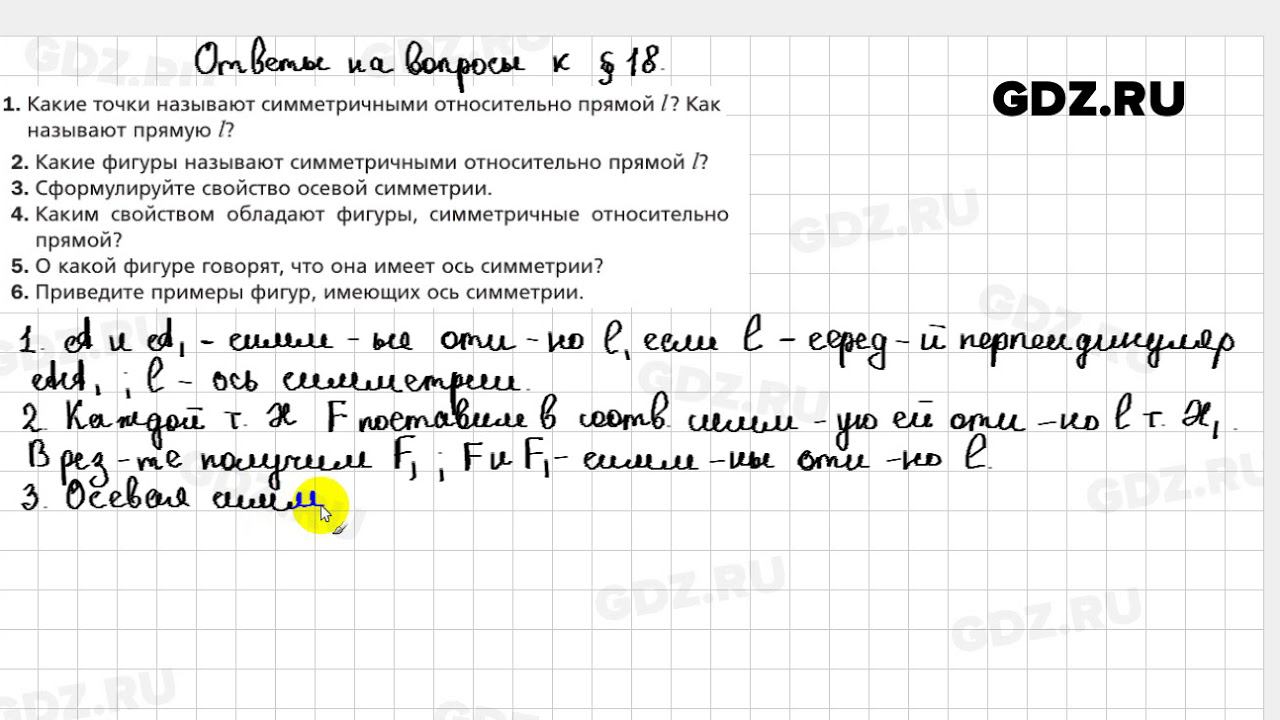 Ответы на вопросы к § 18.
GDZ.RU
1. Какие точки называют симметричными относительно прямой l? Как
называют прямую l?
2. Какие фигуры называют симметричными относительно прямой l?
3. Сформулируйте свойство осевой симметрии.
4. Каким свойством обладают фигуры, симметричные относительно
прямой?
5. О какой фигуре говорят, что она имеет ось симметрии?
6. Приведите примеры фигур, имеющих ось симметрии.
1. A и A₁ - симм-ые отн-но l, если l - серед-й перпендикуляр
AA₁; l - ось симметрии.
2. Каждой т. X F поставим в соотв. симм-ую ей отн-но l т. X₁.
В рез-те получим F₁; F и F₁ - симм-ны отн-но l.
3. Осевая симм
GDZ.RU
GDZ.RU
GDZ.RU
GDZ.RU
GDZ.RU
GDZ.RU
GDZ.RU
GDZ.RU
GDZ.RU